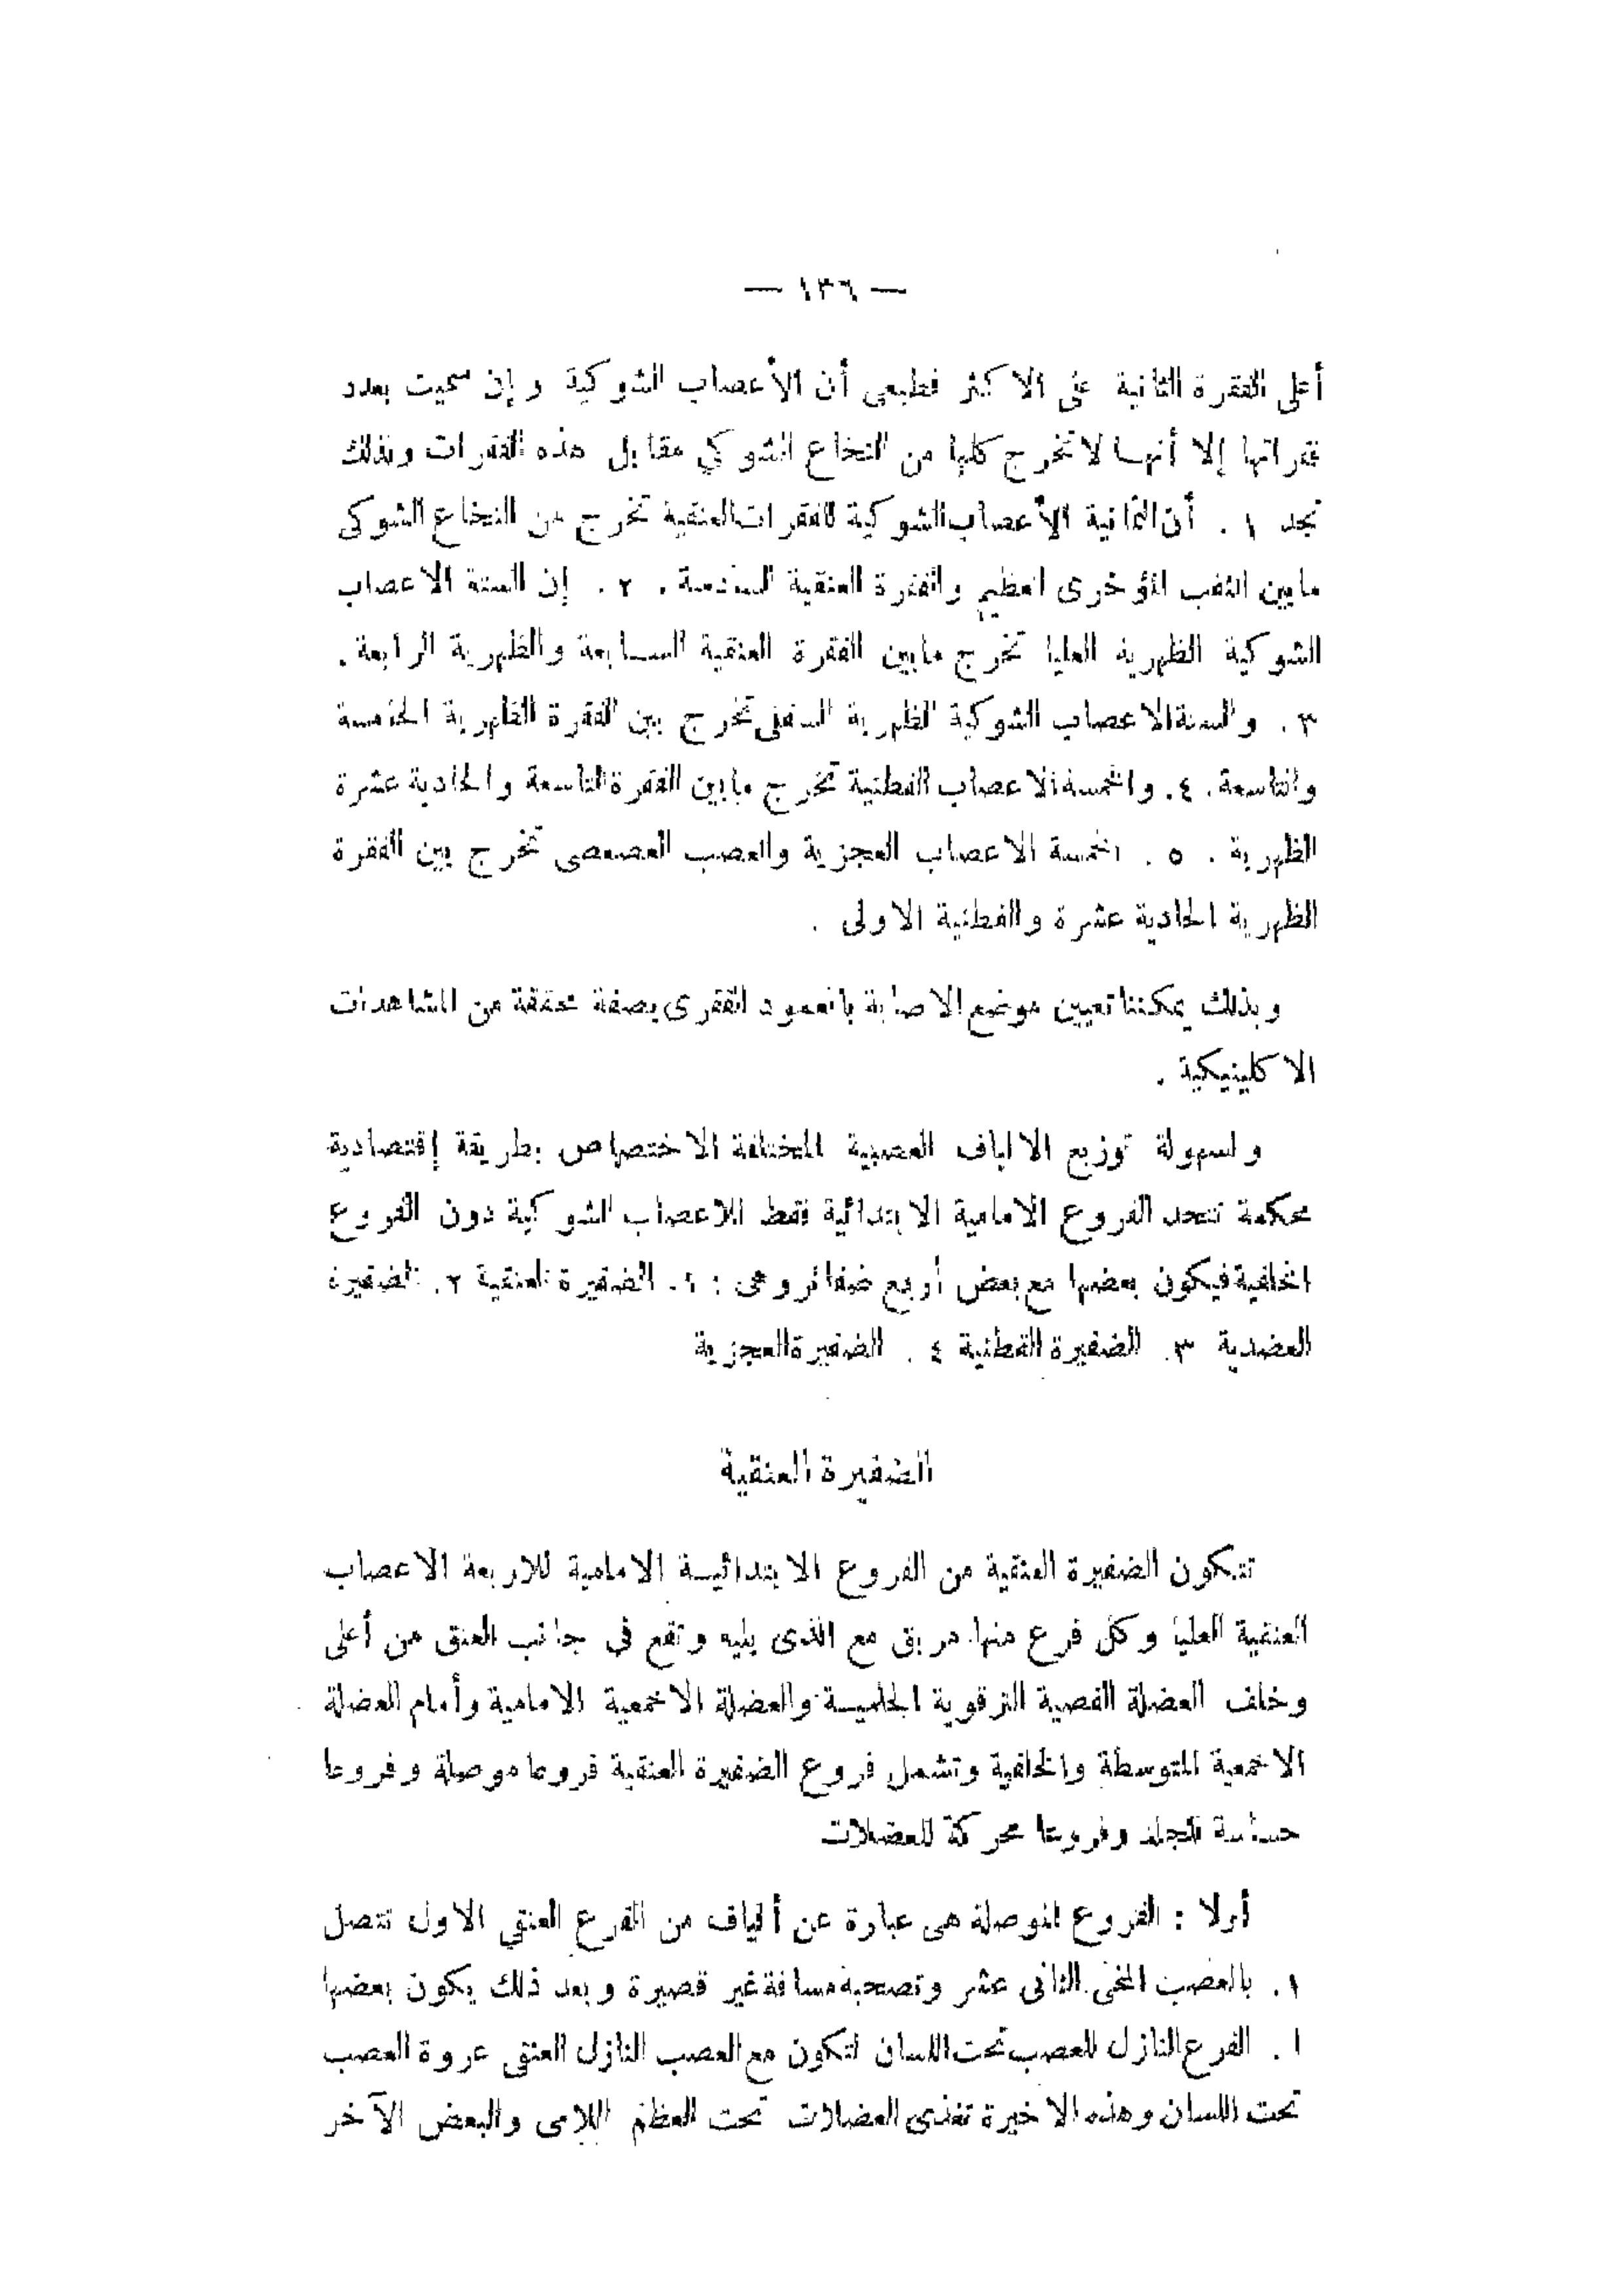 — ١٣٦ —
أعلى الفقرة الثانية على الاكثر فطبعى أن الأعصاب الشوكية وإن سميت بعدد
فقراتها إلا أنها لا تخرج كلها من النخاع الشوكي مقابل هذه الفقرات وبذلك
نجد ١ . أن الثمانية الأعصاب الشوكية للفقرات العنقية تخرج من النخاع الشوكى
مابين الثقب المؤخرى العظيم والفقرة العنقية السادسة . ٢ . إن الستة الاعصاب
الشوكية الظهرية العليا تخرج مابين الفقرة العنقية السابعة والظهرية الرابعة .
٣ . والستة الاعصاب الشوكية الظهرية السفلى تخرج بين الفقرة الظهرية الخامسة
والتاسعة . ٤ . والخمسة الاعصاب القطنية تخرج مابين الفقرة التاسعة والحادية عشرة
الظهرية . ٥ . الخمسة الاعصاب العجزية والعصب العصعصى تخرج بين الفقرة
الظهرية الحادية عشرة والقطنية الاولى .
وبذلك يمكننا تعيين موضع الاصابة بالعمود الفقرى بصفة محققة من المشاهدات
الاكلينيكية .
ولسهولة توزيع الالياف العصبية المختلفة الاختصاص بطريقة إقتصادية
محكمة تتحد الفروع الامامية الابتدائية فقط للاعصاب الشوكية دون الفروع
الخلفية فيكون بعضها مع بعض أربع ضفائر وهى : ١ . الضفيرة العنقية ٢ . الضفيرة
العضدية ٣ . الضفيرة القطنية ٤ . الضفيرة العجزية
الضفيرة العنقية
تتكون الضفيرة العنقية من الفروع الابتدائية الامامية للاربعة الاعصاب
العنقية العليا وكل فرع منها مربق مع الذى يليه وتقع فى جانب العنق من أعلى
وخلف العضلة القصية الترقوية الحلمية والعضلة الاخمعية الامامية وأمام العضلة
الاخمعية المتوسطة والخلفية وتشمل فروع الضفيرة العنقية فروعا موصلة وفروعا
حساسة للجلد وفروعا محركة للعضلات
أولا : الفروع الموصلة هى عبارة عن ألياف من الفرع العنقي الاول تتصل
١ . بالعصب المخى الثانى عشر وتصحبه مسافة غير قصيرة وبعد ذلك يكون بعضها
ا . الفرع النازل للعصب تحت اللسان لتكون مع العصب النازل العنقى عروة العصب
تحت اللسان وهذه الاخيرة تغذى العضلات تحت العظم اللامى والبعض الآخر